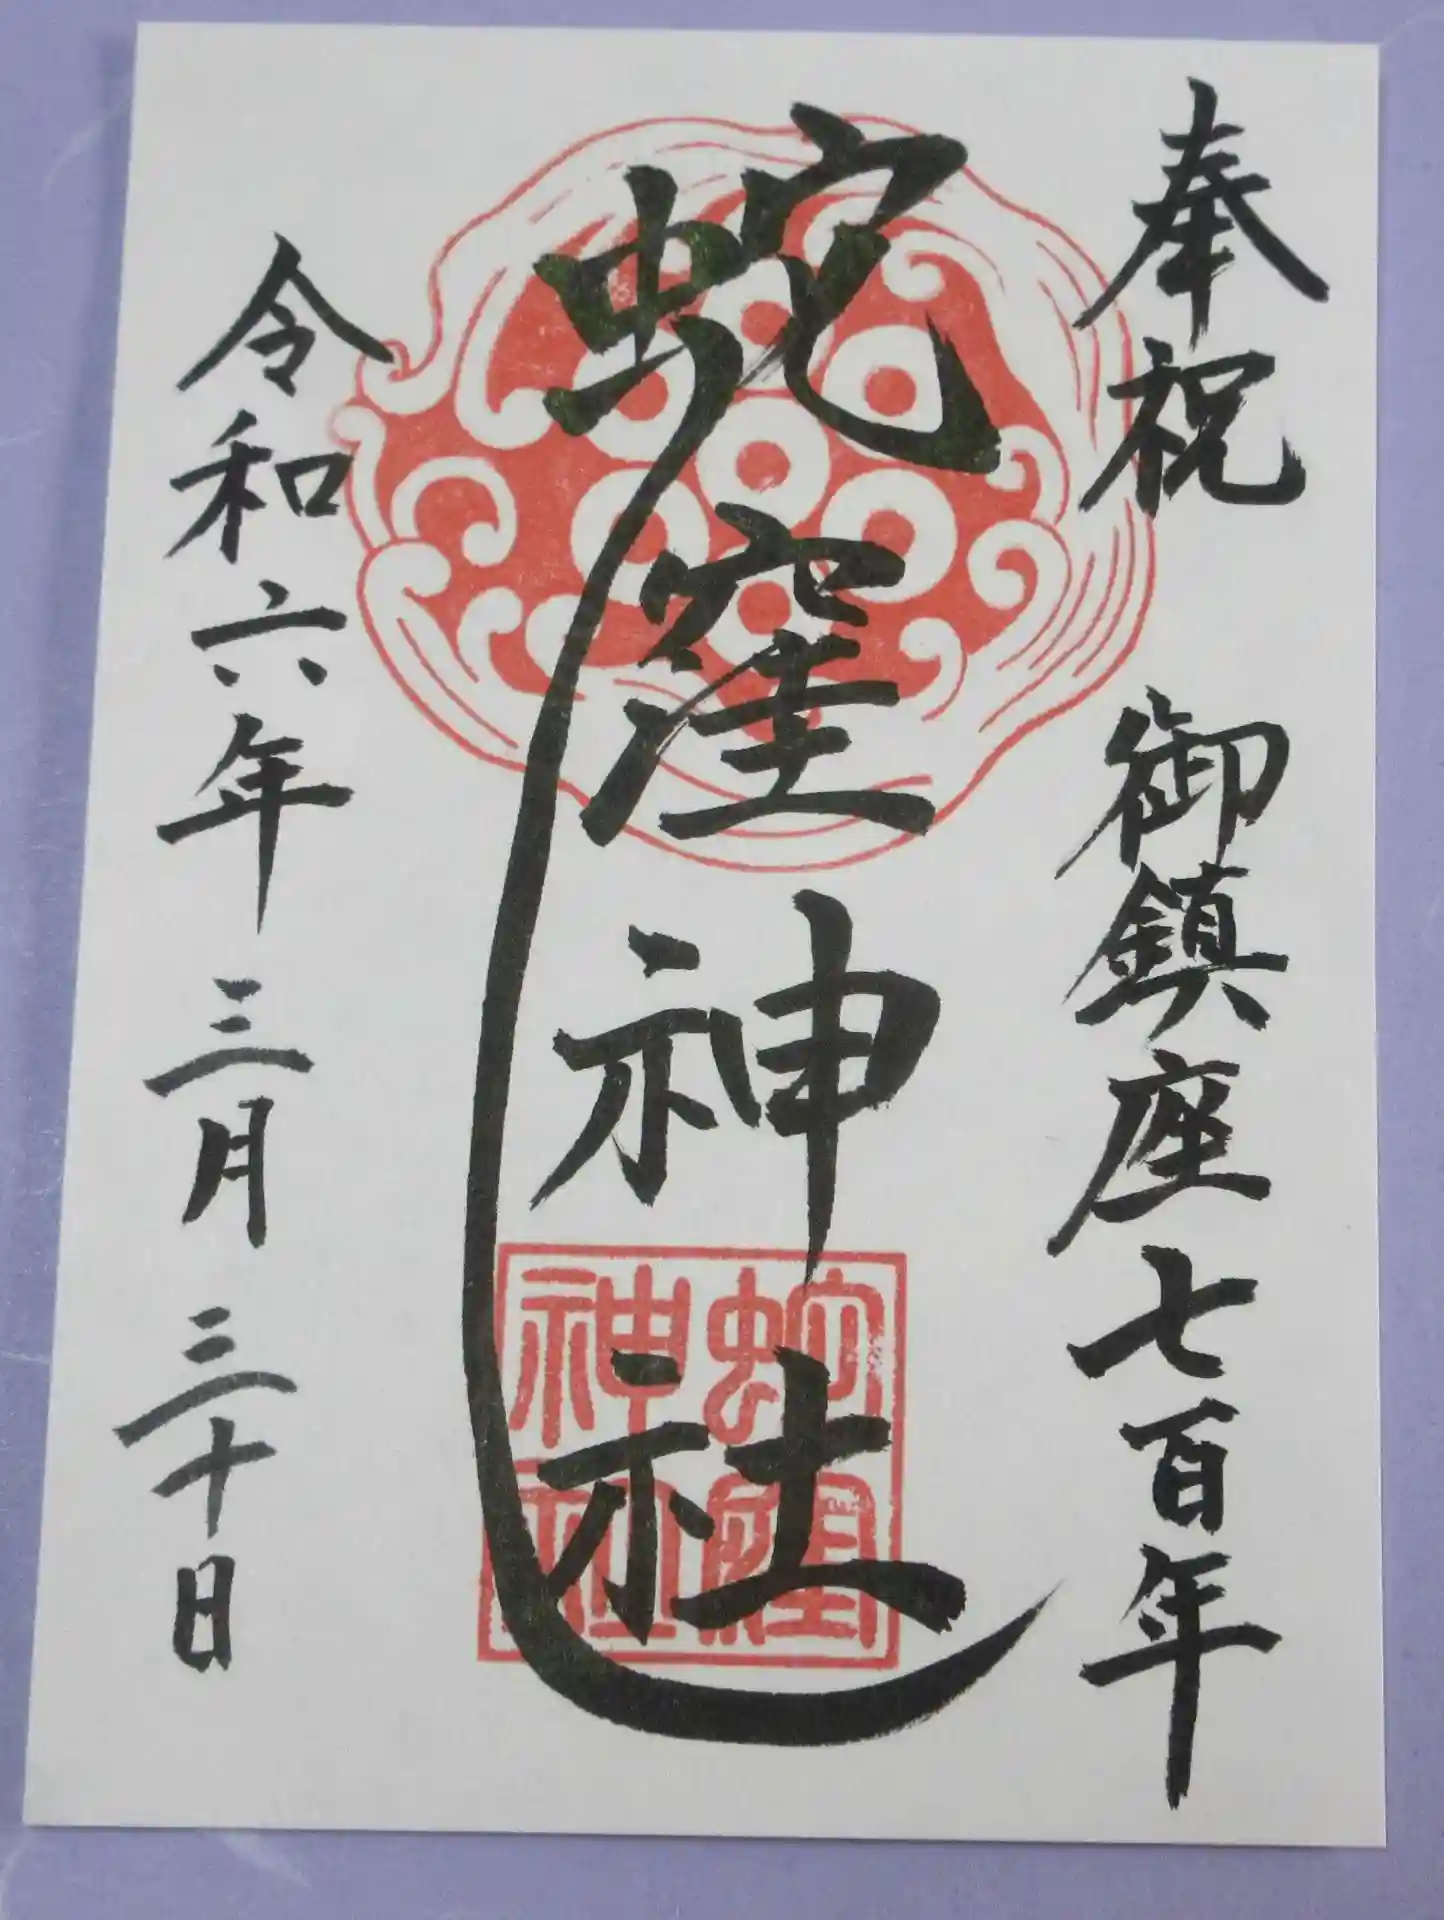 奉祝 御鎮座七百年
蛇窪神社
蛇窪
神社
令和六年三月三十日